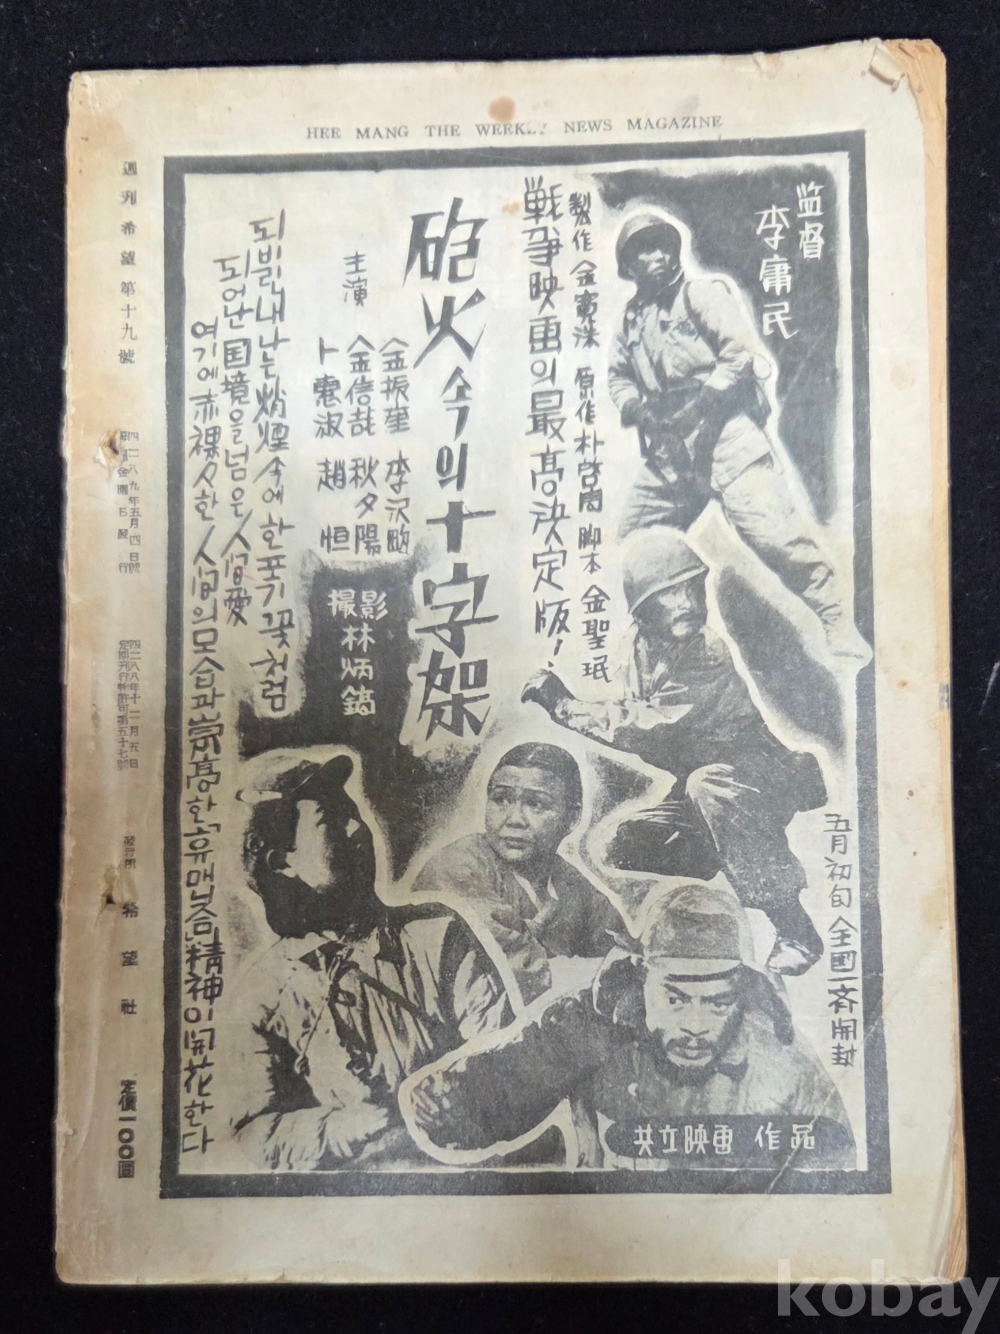 HEE MANG THE WEEKLY NEWS MAGAZINE
監督
李庸民
製作 金寶洙 原作 朴啓周 脚本 金聖珉
戰爭映画의 最高決定版!
砲火 속의 十字架
主演
金振奎 李沢畇
金信哉 秋夕陽
卜惠淑 趙恒
撮影
林炳鎬
되빈내 나는 硝煙 속에 한포기 꽃처럼
되어난 国境을 넘은 人间愛
여기에 赤裸々한 人间의 모습과 崇高한 「휴매니즘」精神이 開花한다
五月初旬 全國一斉開封
共立映画 作品
週刊希望 第十九號
四二八九年五月四日
每週金曜日發行
四二八八年十二月五日
定期刊行物許可第五十七號
發行所 希望社
定價一〇〇圜
kobay